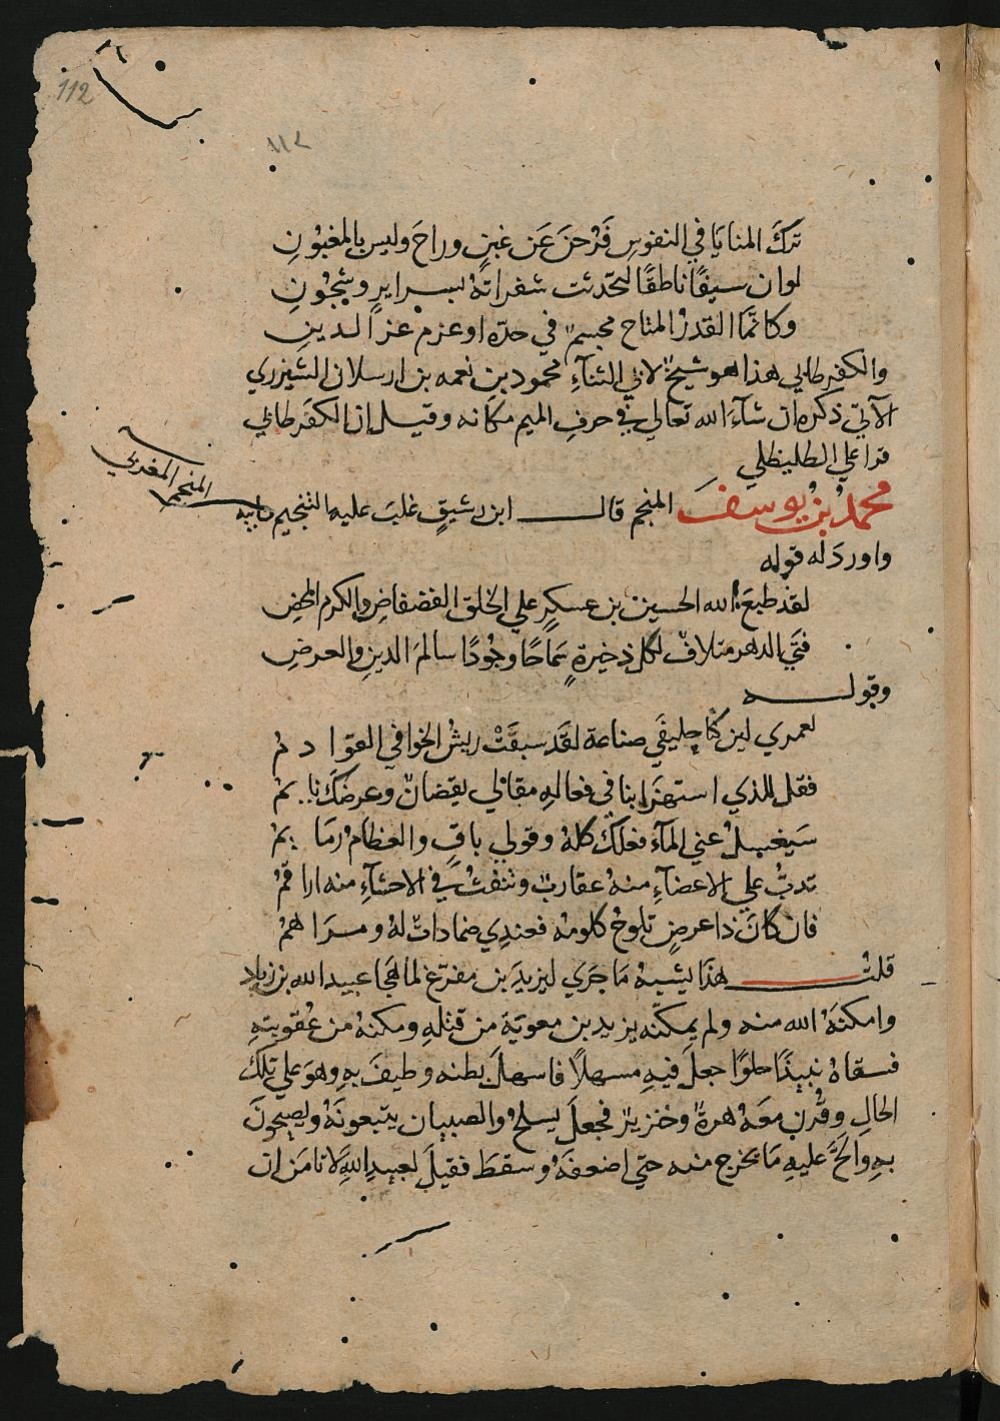 112
١١٢
تركَ المنايَا في النفوسِ فَرُحنَ عَن غبنٍ وراحَ وليس بالمغبُونِ
لوان سيفًا ناطقًا لتحدثت شفراتهُ بسرايرٍ وشجُونِ
وكانّما القدرُ المتاح مجسمٌ في حدّه او عزم عز الدينِ
والكفرطابي هذا هو شيخٌ لابي الثنآءِ محمود بن نعمه بن ارسلان الشيزري
الآتي ذكره ان شآءَ الله تعالي في حرفِ الميم مكانه وقيل ان الكفرطابي
قرا علي الطليطلي
محمدُ بنُ يوسفَ المنجم قال ابن رشيقٍ غلبَ عليه التنجيم
المنجم المغربي
واوردَ له قوله
لقد طبعَ الله الحسين بن عسكرٍ علي الخلق الفضفاضِ والكرم المحضِ
فتَي الدهر متلافٌ لكل ذخيرةٍ سَماحًا وجُودًا سالمَ الدينِ والعرضِ
وقوله
لعمري لين كنا حليفَي صناعة لقد سبقَتْ ريشُ الخوافي القوا دمُ
فقل للذي استهزا بنا في فعاله مقالي يقضانٌ وعرضكَ نا يمُ
سَيغسلُ عني المآءُ فعلكَ كلهُ وقولي باقٍ والعظامُ رما يمُ
تدبُّ علي الاعضآءِ منهُ عقاربٌ وتنفثُ في الاحشآءِ منه اراقمُ
فان كانَ ذا عرضٍ تلوحُ كلومهُ فعندي ضماداتٌ لهُ ومراهمُ
قلتُ هذَا يشبهُ مَا جَري ليزيدَ بن مفرّغ لما هجَا عبيد الله بن زياد
وامكنَهُ الله منه ولم يمكّنه يزيد بن معويَة من قتلهِ ومكنهُ من عُقوبتهِ
فسقاهُ نبيذًا حلوًا جعلَ فيهِ مسهلاً فاسهلَ بطنه وطيفَ بهِ وهوَ علي تلكَ
الحالِ وقُرن معَهُ هرةٌ وخنزيرٌ فجعلَ يسلحُ والصبيان يتبعونَهُ ويصيحونَ
بهِ والحَّ عليهِ مَا يخرج منه حتي اضعفَهُ وسقطَ فقيلَ لعبيدِ اللهِ لَا نامَن ان